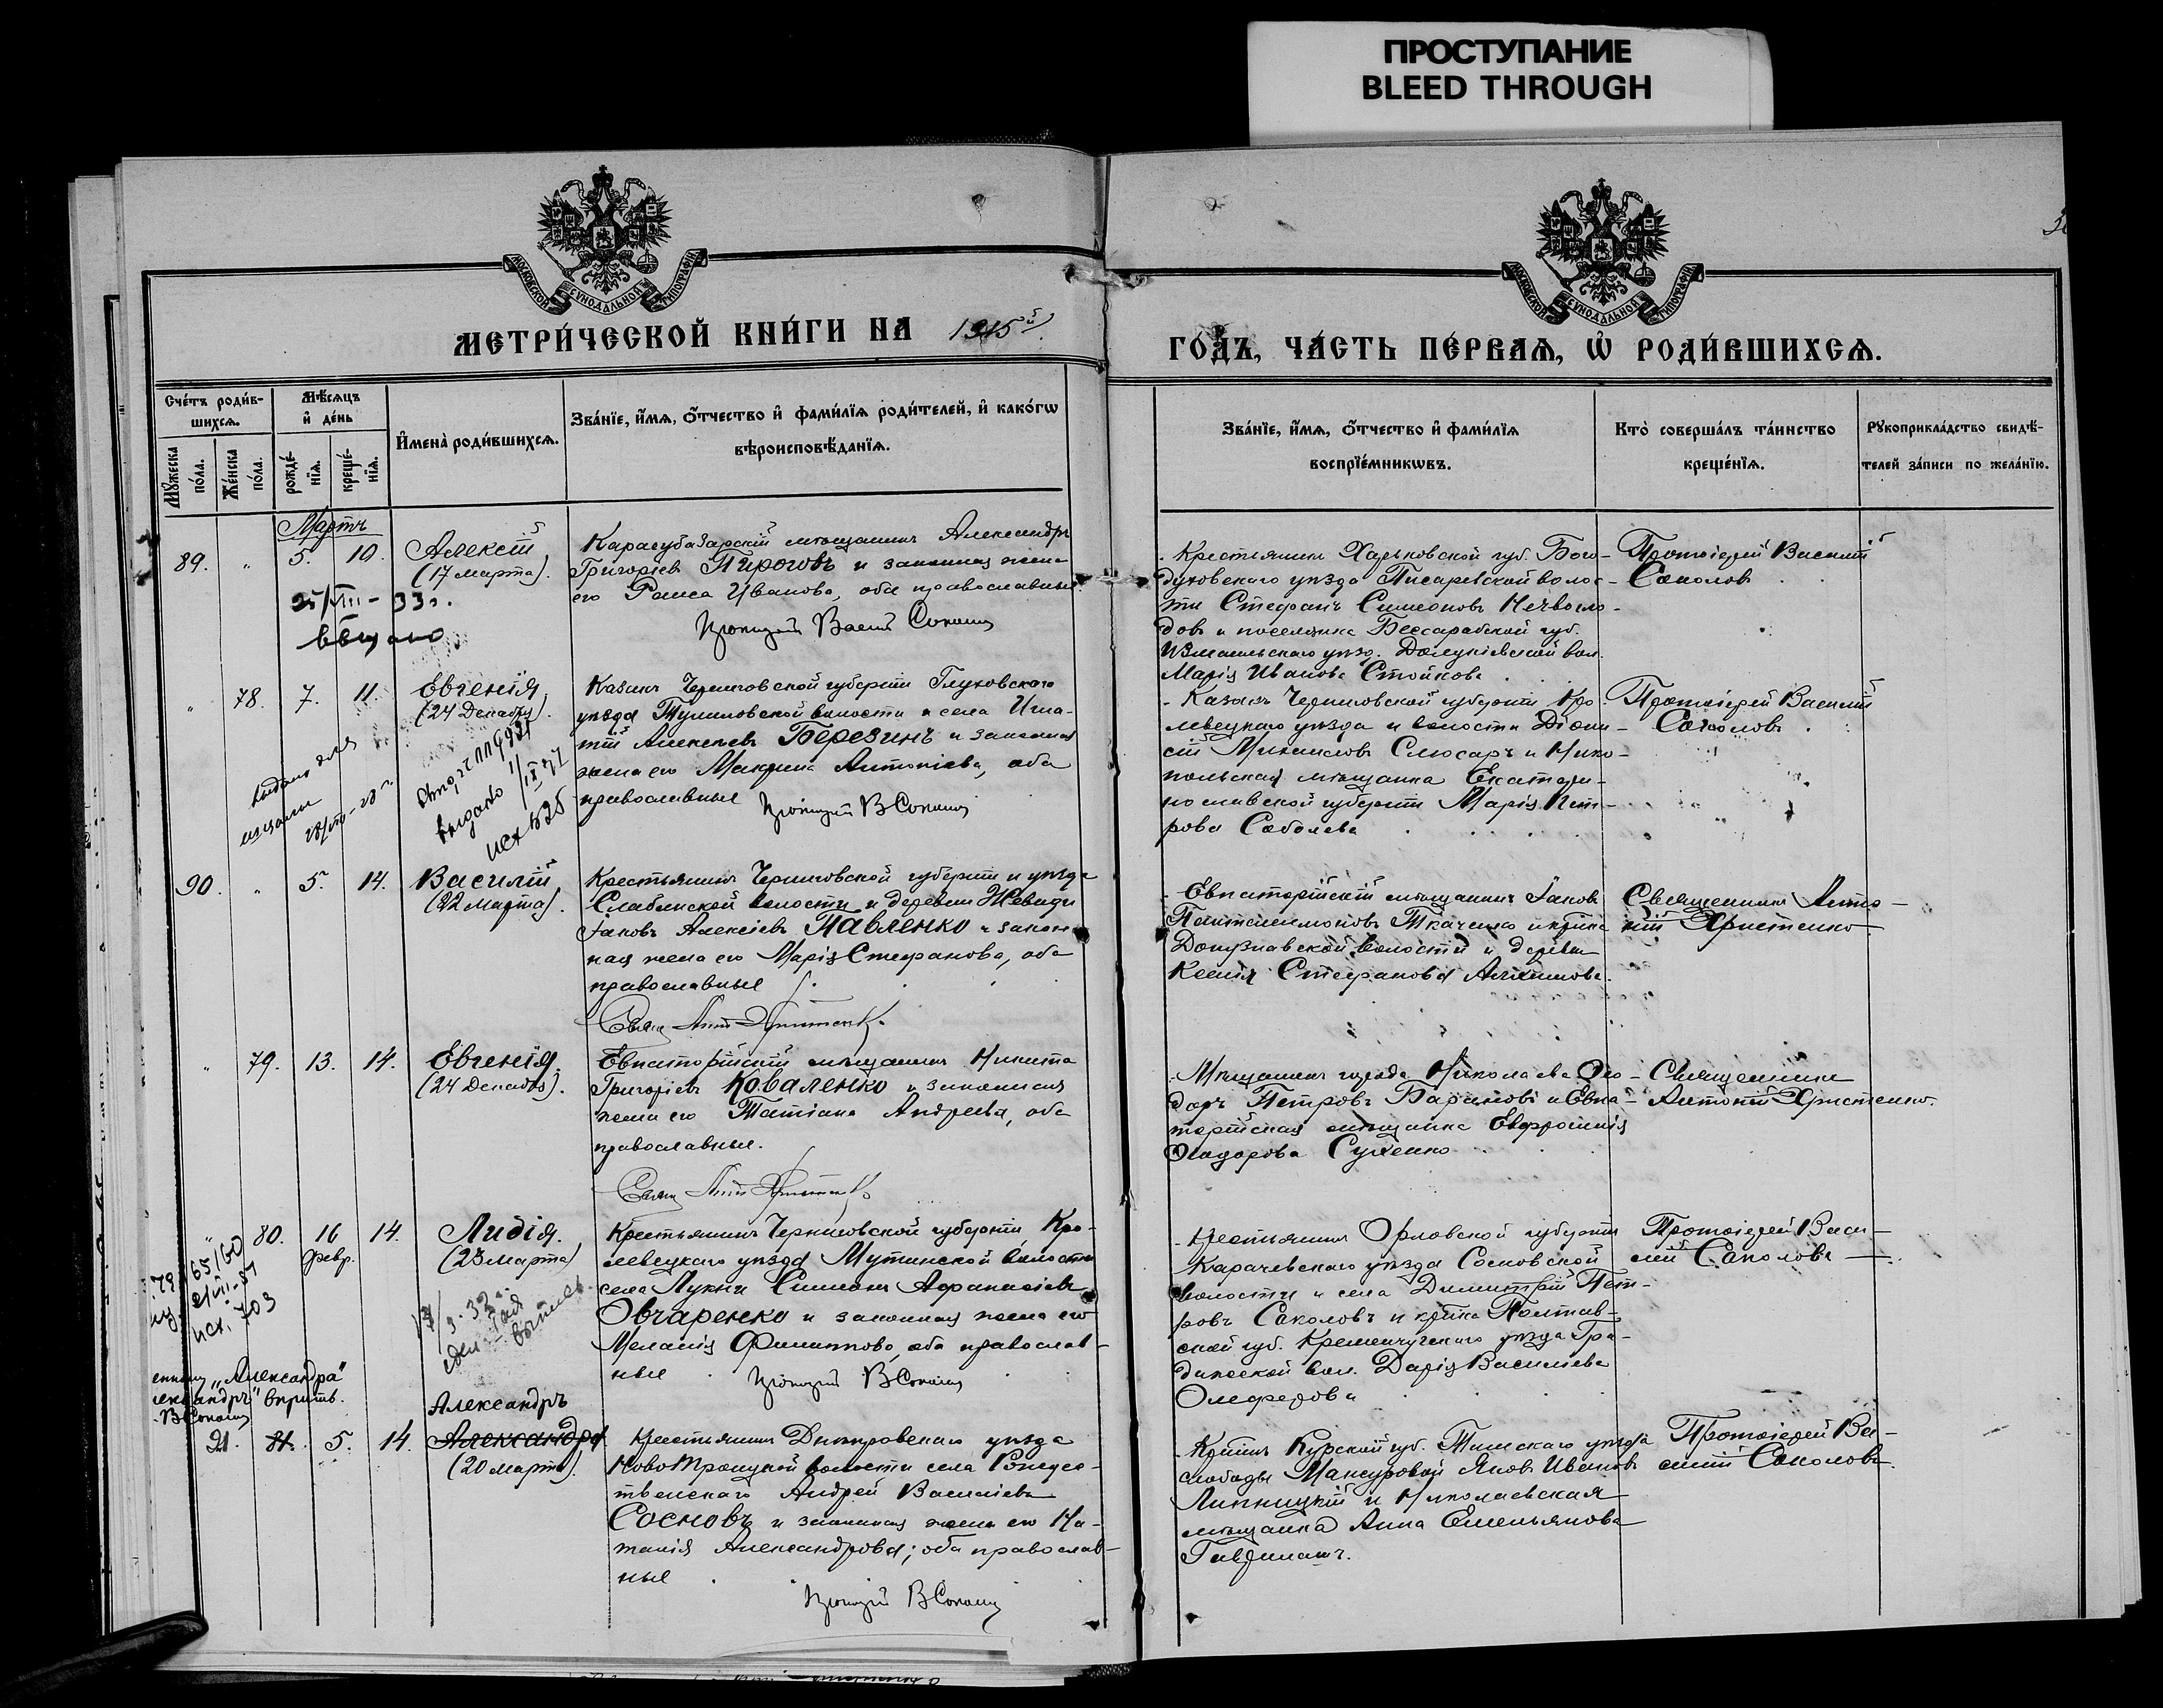 ПРОСТУПАНИЕ
BLEED THROUGH
МОСКОВСКОЙ СУНОДАЛЬНОЙ ТИПОГРАФІИ
МОСКОВСКОЙ СУНОДАЛЬНОЙ ТИПОГРАФІИ
МЕТРИ́ЧЕСКОЙ КНИ́ГИ НА 1915й
ГО́ДЪ, ЧА́СТЬ ПЕ́РВАѦ, Ѡ҆ РОДИ́ВШИХСѦ.
Сче́тъ роди́в-
шихсѧ.
Мѣ́сѧцъ
и҆ де́нь
Мꙋ́жеска
по́ла.
Же́нска
по́ла.
рожде́-
нїѧ.
креще́-
нїѧ.
И҆мена̀ роди́вшихсѧ.
Зва́нїе, и҆́мѧ, ѻ҆́тчество и҆ фами́лїѧ роди́телей, и҆ како́гѡ
вѣроисповѣ́данїѧ.
Зва́нїе, и҆́мѧ, ѻ҆́тчество и҆ фами́лїѧ
воспрїе́мникѡвъ.
Кто̀ соверша́лъ та́инство
креще́нїѧ.
Рꙋкоприкла́дство свидѣ́-
телей за́писи по жела́нїю.
Мартъ
89. " 5. 10. Алексій
(17 Марта).
Карасубазарскій мѣщанинъ Александръ
Григоріевъ Пироговъ и законная жена
его Раиса Иванова, оба православные
Протоіерей Василій Соколовъ
Крестьянинъ Харьковской губ. Бого-
духовскаго уѣзда Писаревской волос-
ти Стефанъ Симеоновъ Нечволо-
довъ и поселянка Бессарабской губ.
Измаильскаго уѣзд. вол.
Марія Иванова Стойкова
Протоіерей Василій
Соколовъ
" 78. 7. 11. Евгенія
(24 Декабря).
Казакъ Черниговской губерніи Глуховскаго
уѣзда Тулиголовской волости и села Игна-
тій Алексѣевъ Березинъ и законная
жена его Макрина Антоніева, оба
православные
Протоіерей ВСоколовъ
выдано
исх 525
Казакъ Черниговской губерніи Кро-
левецкаго уѣзда и волости Діони-
сій Михаиловъ Слюсарь и Нико-
польская мѣщанка Екатери-
нославской губерніи Марія Пет-
рова Соболева
Протоіерей Василій
Соколовъ
90. " 5. 14. Василій
(22 Марта).
Крестьянинъ Черниговской губерніи и уѣзда
Слабинской волости и деревни Жеведи
Іаковъ Алексіевъ Павленко и закон-
ная жена его Марія Стефанова, оба
православные
Евпаторійскій мѣщанинъ Іаковъ
Пантелеимоновъ Ткаченко и кр-ка
Донузлавской волости и деревни
Ксенія Стефанова
Священникъ Анто-
ній Христенко
" 79. 13. 14. Евгенія
(24 Декабря).
Евпаторійскій мѣщанинъ Никита
Григоріевъ Коваленко и законная
жена его Татіана Андреева, оба
православные.
Мѣщанинъ города Николаева Ѳео-
доръ Петровъ Барановъ и Евпа-
торійская мѣщанка Евфросинія
Ѳеодорова Сухенко
Священникъ
Антоній Христенко.
" 80. 16 14. Лидія
февр.
(23 Марта)
Крестьянинъ Черниговской губерніи, Кро-
левецкаго уѣзда Мутинской волости
села Лукни Симеонъ Аѳанасіевъ
Овчаренко и законная жена его
Меланія Филиппова, оба православ-
ные
Протоіерей ВСоколовъ
исх. 703
Крестьянинъ Орловской губерніи
Карачевскаго уѣзда Сосновской
волости и села Димитрій Пет-
ровъ Соколовъ и кр-нка Полтав-
ской губ. Кременчугскаго уѣзда Гра-
дижской вол. Дарія Василіева
Олефирова
Протоіерей Васи-
лій Соколовъ
"Александра"
ВСоколовъ
Александръ
91. 81. 5. 14. Александра
(20 марта).
Крестьянинъ Днѣпровскаго уѣзда
Ново Троицкой волости села Рождес-
твенскаго Андрей Василіевъ
Сосновъ и законная жена его На-
талія Александрова; оба православ-
ные
Протоіерей ВСоколовъ
Кр-нинъ Курской губ. Тимскаго уѣзда
слободы Мансуровой Яковъ Ивановъ
Липницкій и Николаевская
мѣщанка Анна Емельянова
Протоіерей Ва-
силій Соколовъ